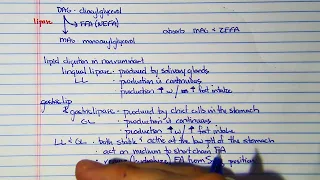 DAG - diacylglycerol
lipase
FFA (NEFA)
absorb MAG + 2FFA
MAG monoacylglycerol
lipid digestion in nonruminant
lingual lipase - produced by salivary glands
LL - production is continuous
production ↑ w/ ↑ fat intake
gastric lip
gastric lipase - produced by chief cells in the stomach
GL - production is continuous
production ↑ w/ ↑ fat intake
LL + GL - both stable + active at the low pH of the stomach
- act on medium to short chain FA
FA from position